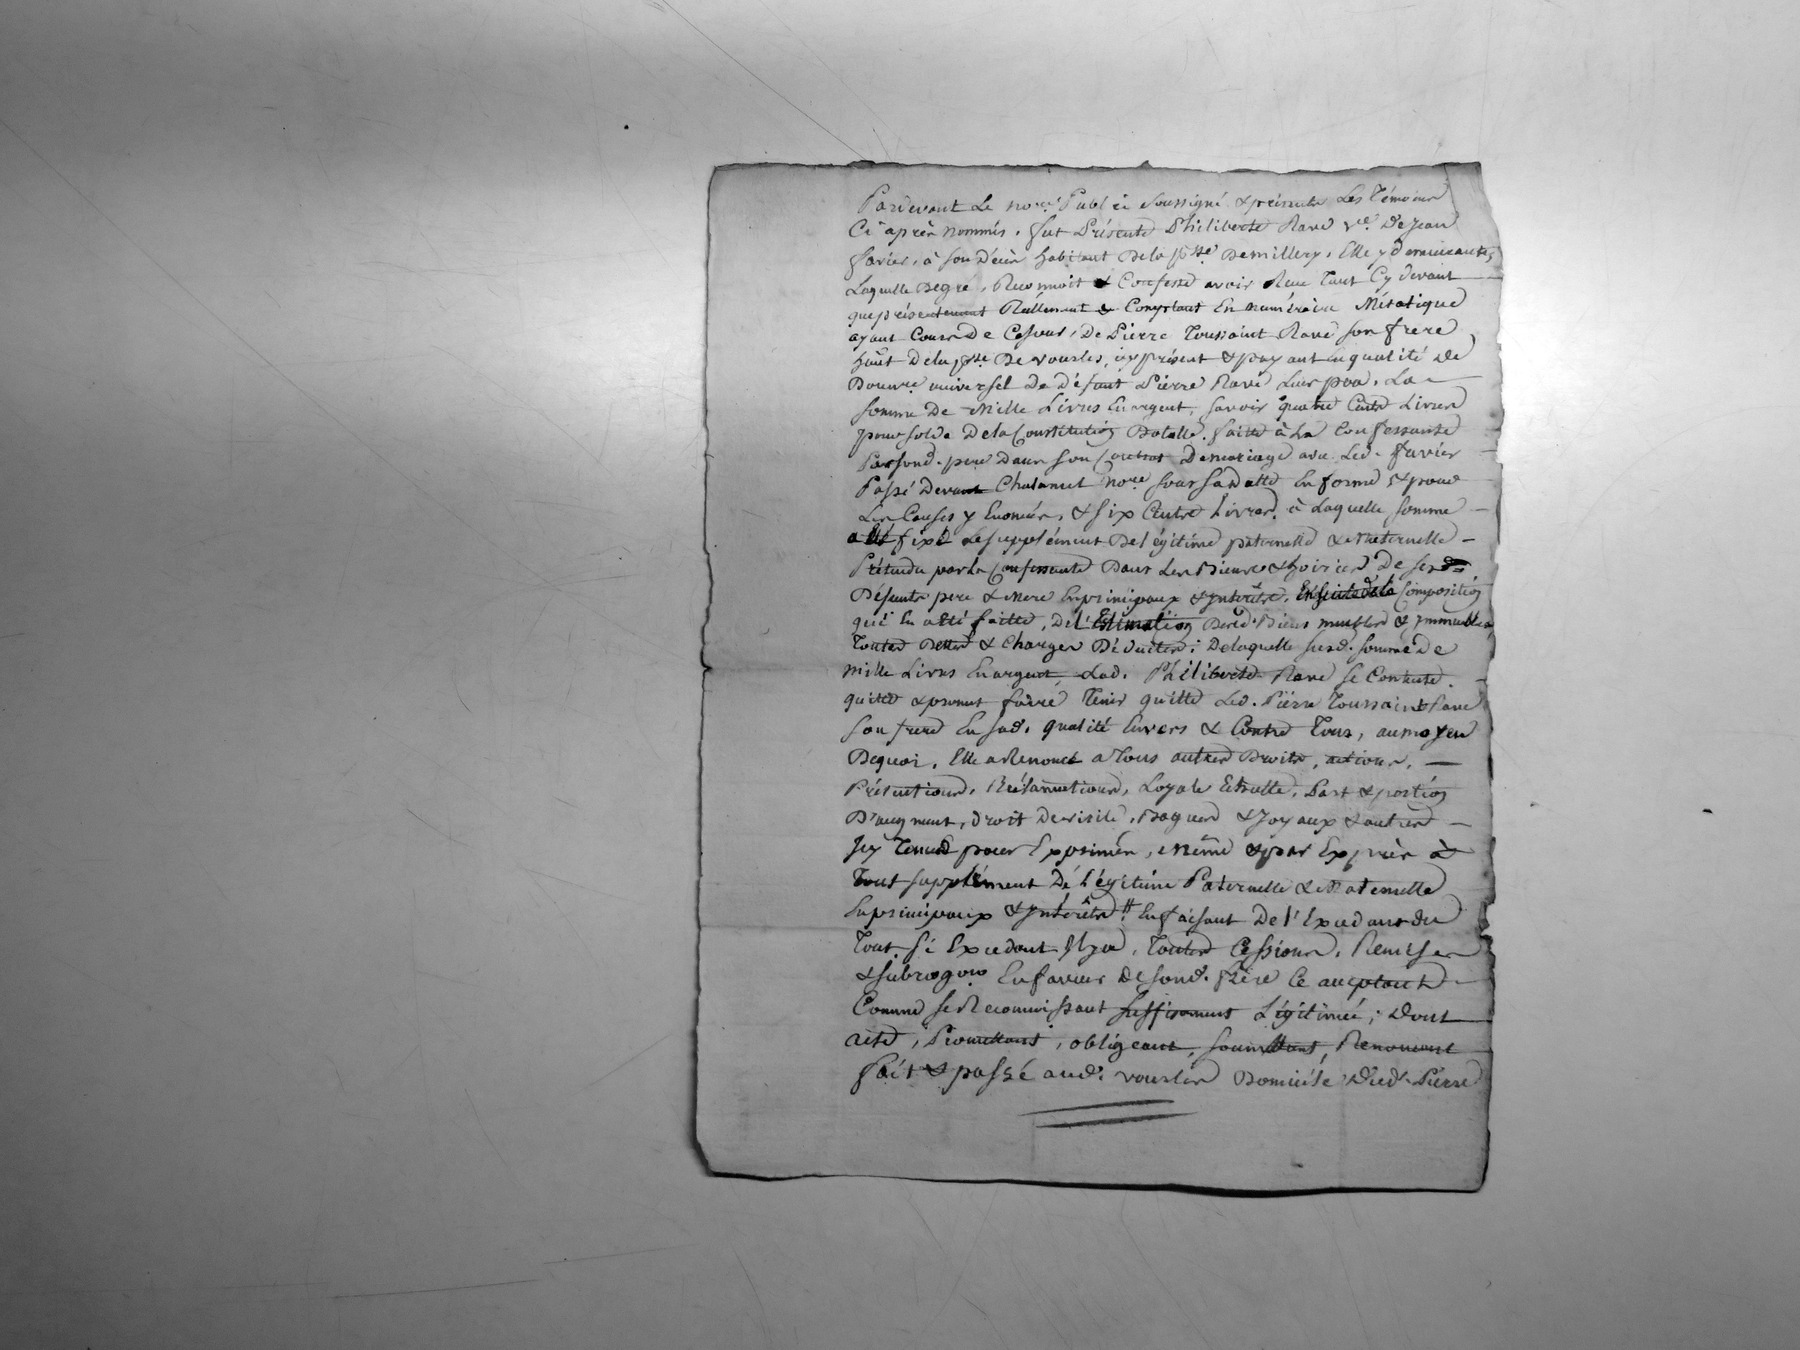 Pardevant Le no.re Public soussigné & présents Les Témoins
Ci après nommés. fut Présente Philiberte Ravé v.e De Jean
favier, à son décès habitant De la p.sse De millery, Elle y demeurante,
Laquelle De gré, Reconnoit & Confesse avoir Reçue Tant Cy devant
que présentement Réellement & Comptant En numéraire Métalique
ayant Cours De Ce jour, De Pierre Toussaint Ravé son frere
hab.t De la p.sse De vourles, icy présent & payant En qualité de
Donn.re universel De Défunt Pierre Ravé Leur pere, La
somme De Mille Livres En argent, savoir quatre Cents Livres
pour solde De la Constitution Dotalle faitte à La Confessante
Par sond. pere Dans son Contrat De mariage avec Led. favier
Passé Devant Chalamel no.re sous sa Datte En forme & pour
Les Causes y Enoncées, & six Cents Livres à Laquelle somme
a Eté fixé Le supplément De légitime paternelle & Maternelle
Prétendu par la Confessante Dans Les Biens & hoiries De sesd.
Défunts pere & Mere En principaux & yntérêts, En suite de la Composition
qui En a été faitte, De L'Estimation Desd. Biens meubles & ymmeubles
Toutes Dettes & Charges Déduites; De laquelle susd. somme De
mille Livres En argent, Lad. Philiberte Ravé se Contente.
quitte & promet faire Tenir quitte Led. Pierre Toussaint Ravé
son frere En sad. qualité Envers & Contre Tous, au moyen
De quoi, Elle a Renoncé a Tous autres Droits, actions,
Prétentions, Réclamations, Loyale Echutte, Part & portion
D'augment, droit De visite, Bagues & Joyaux & autres
Icy Tenus pour Exprimés, Même & par Exprès à
Tout supplément De Légitime Paternelle & Maternelle
En principaux & yntérêts, En faisant De l'Excedant du
Tout, si Excedant Il y a, Toutes Cessions, Remises
& subrog.ons En faveur De sond. frère Ce acceptant
Comme se Reconnoissant suffisament Légitimée; Dont
acte, Promettant, obligeant, soumettant, Renonçant
fait & passé aud. vourles Domicile Dud. Pierre